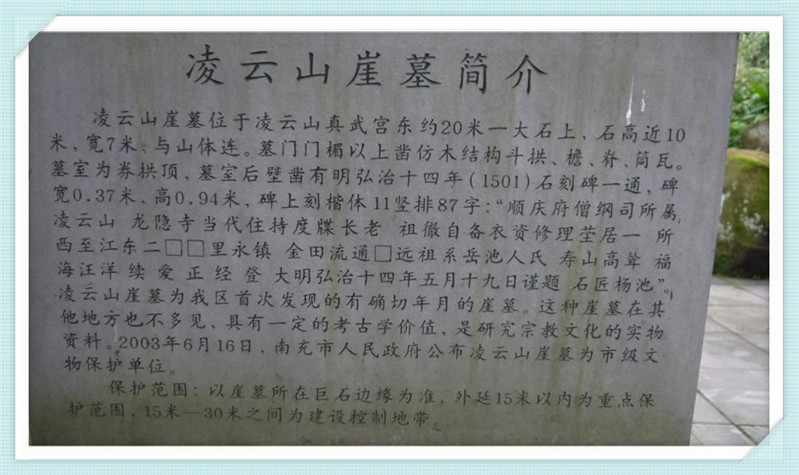 凌云山崖墓简介
凌云山崖墓位于凌云山真武宫东约20米一大石上，石高近10
米，宽7米，与山体连。墓门门楣以上凿仿木结构斗拱、檐、脊、筒瓦。
墓室为券拱顶，墓室后壁凿有明弘治十四年（1501）石刻碑一通，碑
宽0.37米，高0.94米，碑上刻楷体11竖排87字：“顺庆府僧纲司所属
凌云山 龙隐寺当代住持度牒长老 祖徽自备衣资修理茔居一 所
西至江东二□□里永镇 金田流通□远祖系岳池人民 寿山高耸 福
海汪洋 续 爱 正 经 登 大明弘治十四年五月十九日谨题 石匠杨池”。
凌云山崖墓为我区首次发现的有确切年月的崖墓。这种崖墓在其
他地方也不多见，具有一定的考古学价值，是研究宗教文化的实物
资料。2003年6月16日，南充市人民政府公布凌云山崖墓为市级文
物保护单位。
保护范围：以崖墓所在巨石边缘为准，外延15米以内为重点保
护范围，15米—30米之间为建设控制地带